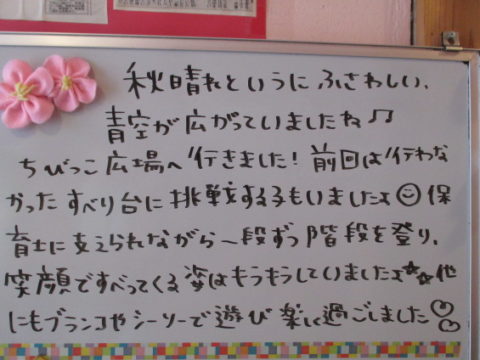 秋晴れというにふさわしい、
青空が広がっていましたね♫
ちびっこ広場へ行きました!前回は行わな
かったすべり台に挑戦する子もいましたよ☺保
育士に支えられながら一段ずつ階段を登り、
笑顔ですべってくる姿はもうもうしていましたよ☆☆他
にもブランコやシーソーで遊び楽しく過ごしました♡♡